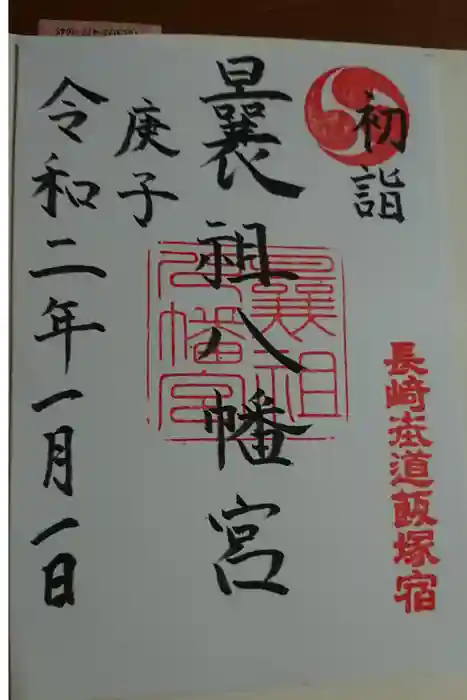 初詣
長崎街道飯塚宿
曩祖八幡宮
曩祖
八幡宮
庚子
令和二年一月一日